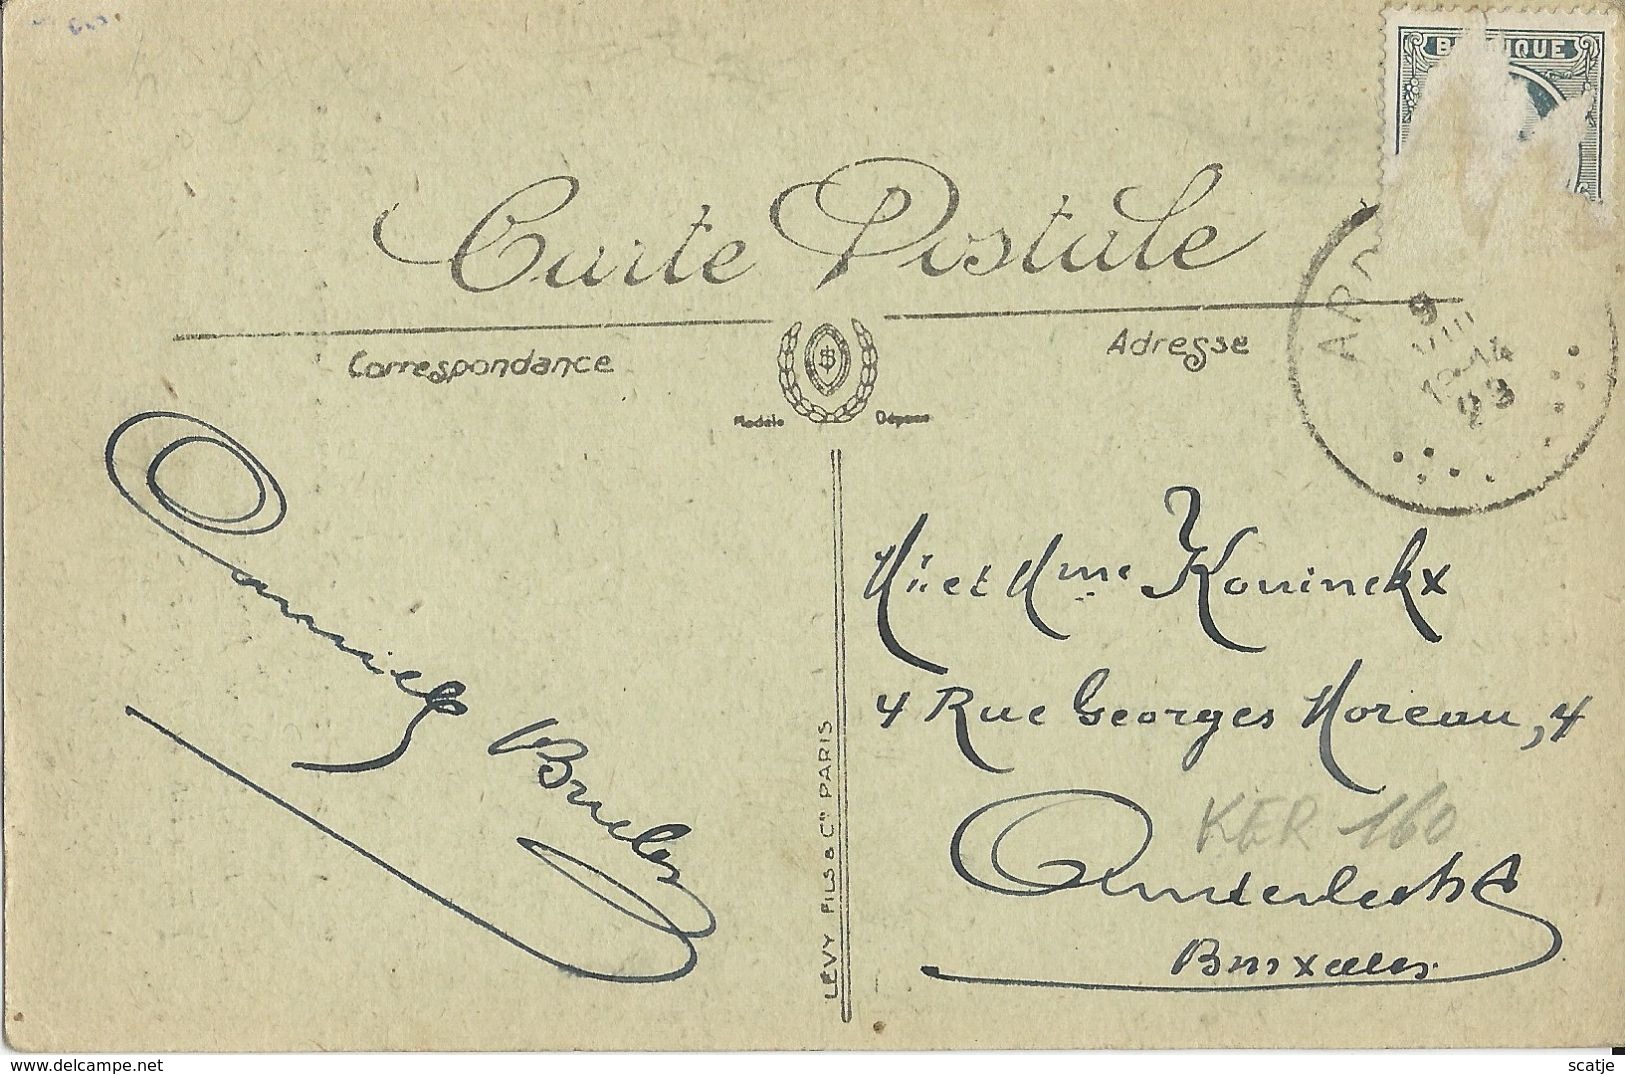 BELGIQUE
Carte Postale
Correspondance
Adresse
Modèle Déposé
9
VIII
13-14
23
Mr et Mme Koninckx
4 Rue Georges Moreau, 4
KER 160
Anderlecht
Bruxelles
LEVY FILS & Cie PARIS
delcampe.net
scatje